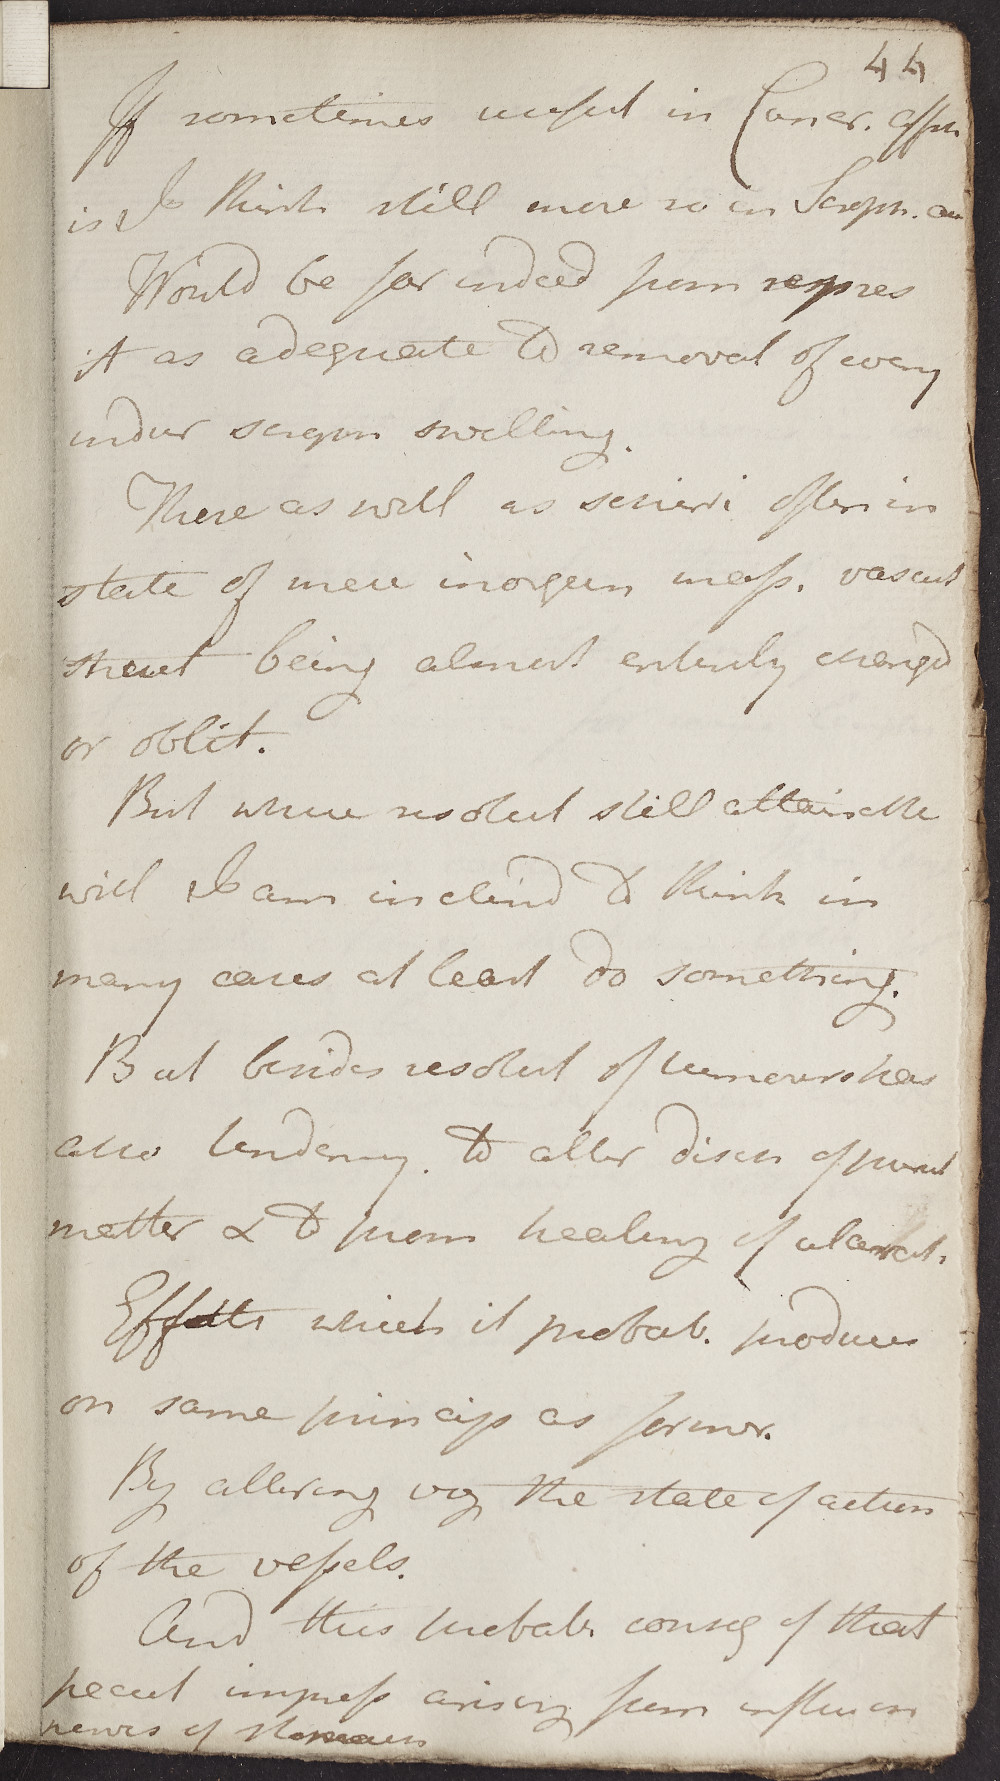 44
If sometimes useful in Cancr. affn
is I think still more so in Scroph. cas
Would be far indeed from repres
it as adequate to removal of every
indur scrophn swelling.
These as well as scirrhi often in
state of mere inorgan mass. vascul
struct being almost entirely changd
or oblit.
But where resolut still attainable
will I am inclind to think in
many cases at least do something.
But besides resolut of tumours has
also tendency. to alter disch of purul
matter & to prom healing of ulcerat.
Effects which it probab. produces
on same princips as former.
By altering viz the state of action
of the vessels.
And this probab. conseq of that
pecul impress arising from influ on
nerves of stomach